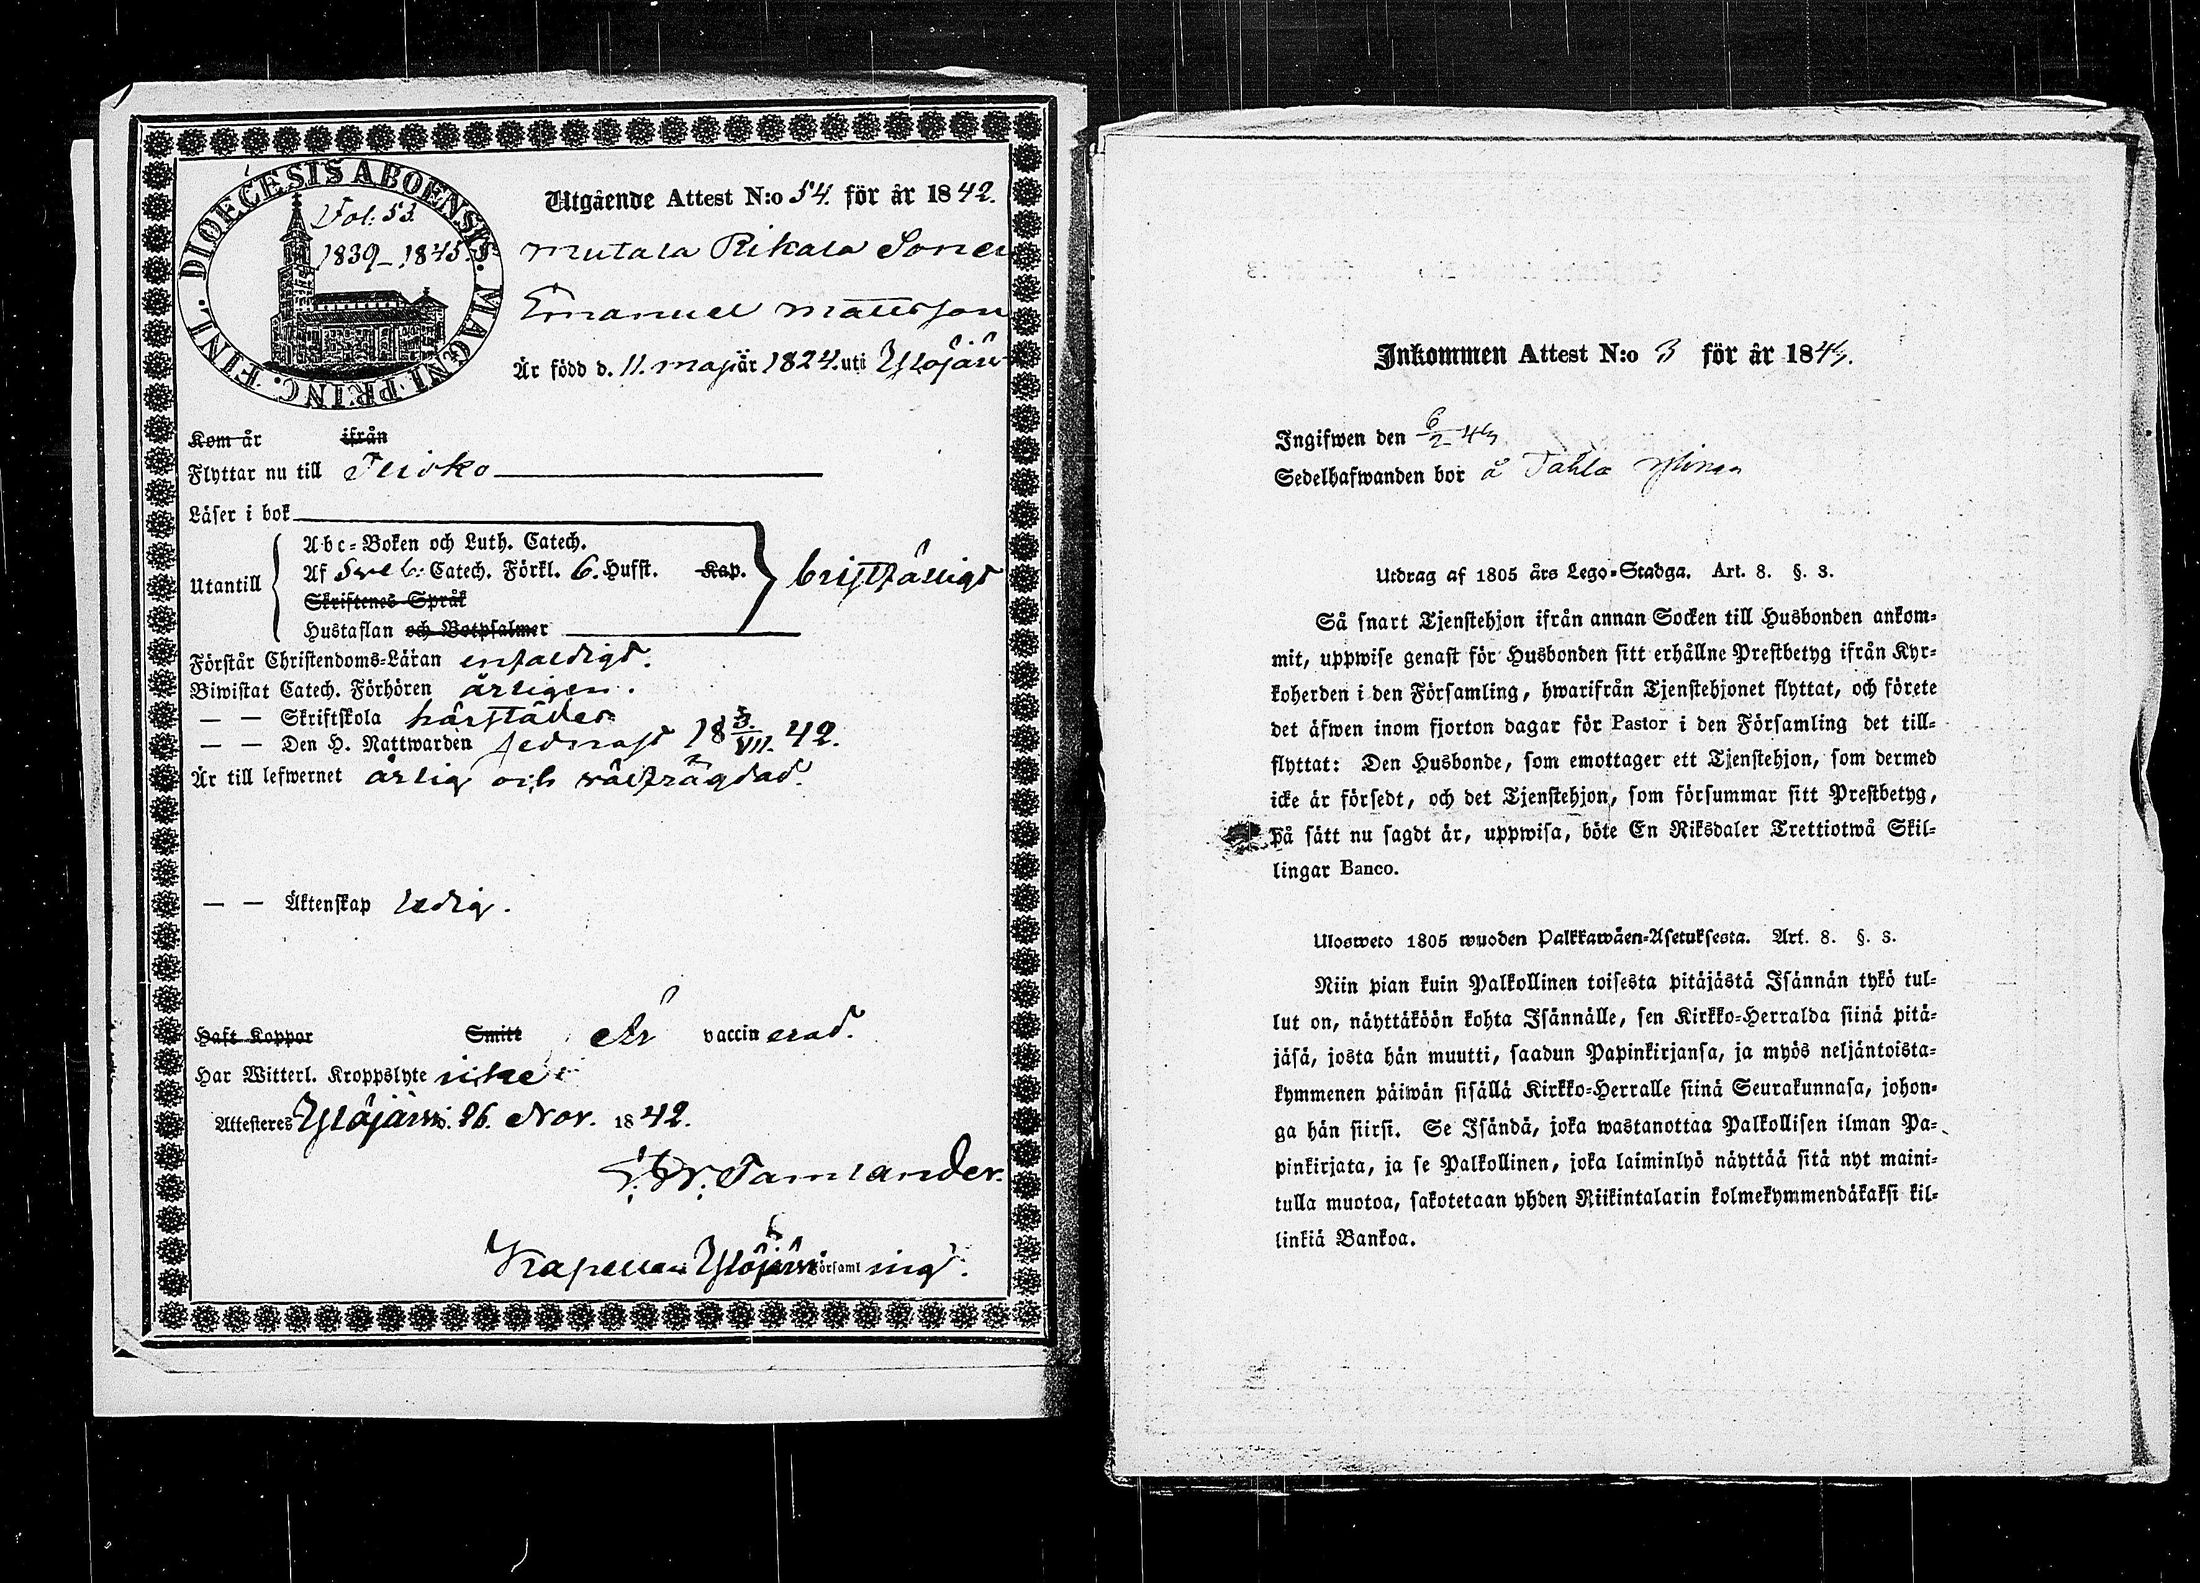 DIOECESIS ABOENSIS. MAGNI PRINC. FINL.
Vol. 53.
1839–1845.
Utgående Attest N:o 54. för år 1842.
Mutala Rikala Sonen
Emanuel Mattsson
Är född d. 11. maji år 1824. uti Ylöjärvi
Kom år ifrån
Flyttar nu till Teisko
Läser i bok
Utantill
Abc-Boken och Luth. Catech.
Af Sveb. Catech. Förkl. 6. Hufst. Kap.
Skriftenes Språk
Hustaflan och Botpsalmer
bristfälligt
Förstår Christendoms-Läran enfaldigt.
Biwistat Catech. Förhören årligen.
— — Skriftskola härstädes
— — Den H. Nattwarden sednast 18 3/VII. 42.
Är till lefwernet ärlig och välfrägdad.
— — Äktenskap ledig.
Haft Koppor Smitt Är vaccinerad.
Har Witterl. Kroppslyte icke
Attesteres Ylöjärvi. 26. Nov. 1842.
Tamlander.
Kapellan i Ylöjärvi Församling.
Inkommen Attest N:o 3 för år 1843.
Ingifwen den 6/2 43
Sedelhafwanden bor å Tahlo
Utdrag af 1805 års Lego-Stadga. Art. 8. §. 3.
Så snart Tjenstehjon ifrån annan Socken till Husbonden ankom-
mit, uppwise genast för Husbonden sitt erhållne Prestbetyg ifrån Kyr-
koherden i den Församling, hwarifrån Tjenstehjonet flyttat, och förete
det äfwen inom fjorton dagar för Pastor i den Församling det till-
flyttat: Den Husbonde, som emottager ett Tjenstehjon, som dermed
icke är försedt, och det Tjenstehjon, som försummar sitt Prestbetyg,
på sätt nu sagdt är, uppwisa, böte En Riksdaler Trettiotwå Skil-
lingar Banco.
Ulosweto 1805 wuoden Palkkawäen-Asetuksesta. Art. 8. §. 3.
Niin pian kuin Palkollinen toisesta pitäjästä Isännän tykö tul-
lut on, näyttäköön kohta Isännälle, sen Kirkko-Herralda siinä pitä-
jäsä, josta hän muutti, saadun Papinkirjansa, ja myös neljäntoista-
kymmenen päiwän sisällä Kirkko-Herralle siinä Seurakunnasa, johon-
ga hän siirsi. Se Isändä, joka wastanottaa Palkollisen ilman Pa-
pinkirjata, ja se Palkollinen, joka laiminlyö näyttää sitä nyt maini-
tulla muotoa, sakotetaan yhden Riikintalarin kolmekymmendäkaksi kil-
linkiä Bankoa.